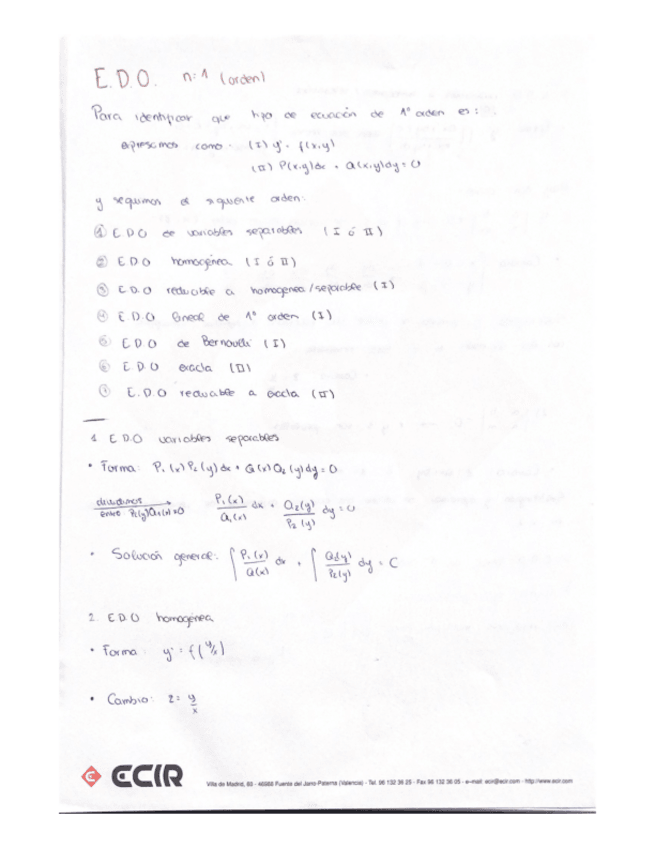 E.D.O. n=1 (orden)
Para identificar que tipo de ecuación de 1º orden es:
expresamos como: (I) y' = f(x,y)
(II) P(x,y)dx + Q(x,y)dy = 0
y seguimos el siguiente orden:
① E.D.O de variables separables (I ó II)
② E.D.O homogénea (I ó II)
③ E.D.O reducible a homogenea/separable (I)
④ E.D.O lineal de 1º orden (I)
⑤ E.D.O de Bernoulli (I)
⑥ E.D.O exacta (II)
⑦ E.D.O reducible a exacta (II)
1. E.D.O variables separables
• Forma: P₁(x)P₂(y)dx + Q₁(x)Q₂(y)dy = 0
dividimos entre P₂(y)Q₁(x)≠0 P₁(x)/Q₁(x) dx + Q₂(y)/P₂(y) dy = 0
• Solución general: ∫ P₁(x)/Q₁(x) dx + ∫ Q₂(y)/P₂(y) dy = C
2. E.D.O homogénea
• Forma: y' = f(y/x)
• Cambio: z = y/x
ECIR
Villa de Madrid, 60 - 46988 Fuente del Jarro-Paterna (Valencia) - Tel. 96 132 36 25 - Fax 96 132 36 05 - e-mail: ecir@ecir.com - http://www.ecir.com